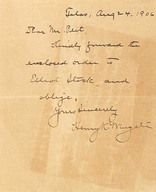 Aug 24, 1906
Dear Mr. Peet,
Kindly forward the
enclosed order to
Elliot Stock and
oblige,
Yours Sincerely
Henry